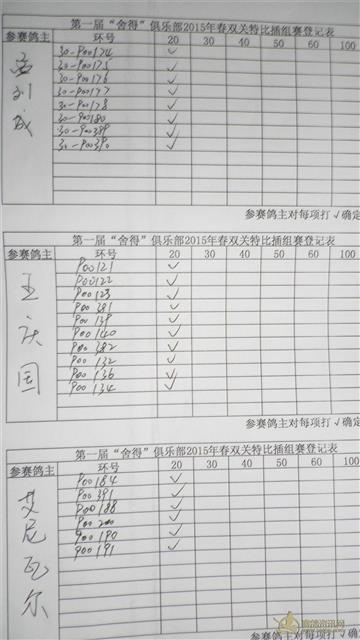 第一届“舍得”俱乐部2015年春双关特比插组赛登记表
参赛鸽主 环号 20 30 40 50 60 80 100
孟利成
30-P00174 ✓
30-P00175 ✓
30-P00176 ✓
30-P00177 ✓
30-P00178 ✓
30-P00180 ✓
30-P00389 ✓
30-P00390 ✓
参赛鸽主对每项打√确定
第一届“舍得”俱乐部2015年春双关特比插组赛登记表
参赛鸽主 环号 20 30 40 50 60 80 100
王庆国
P00121 ✓
P00122 ✓
P00123 ✓
P00381 ✓
P00139 ✓
P00140 ✓
P00382 ✓
P00132 ✓
P00136 ✓
P00134 ✓
参赛鸽主对每项打√确定
第一届“舍得”俱乐部2015年春双关特比插组赛登记表
参赛鸽主 环号 20 30 40 50 60 80 100
艾尼瓦尔
P00184 ✓
P00391 ✓
P00188 ✓
P00200 ✓
P00190 ✓
P00191 ✓
参赛鸽主对每项打√确定